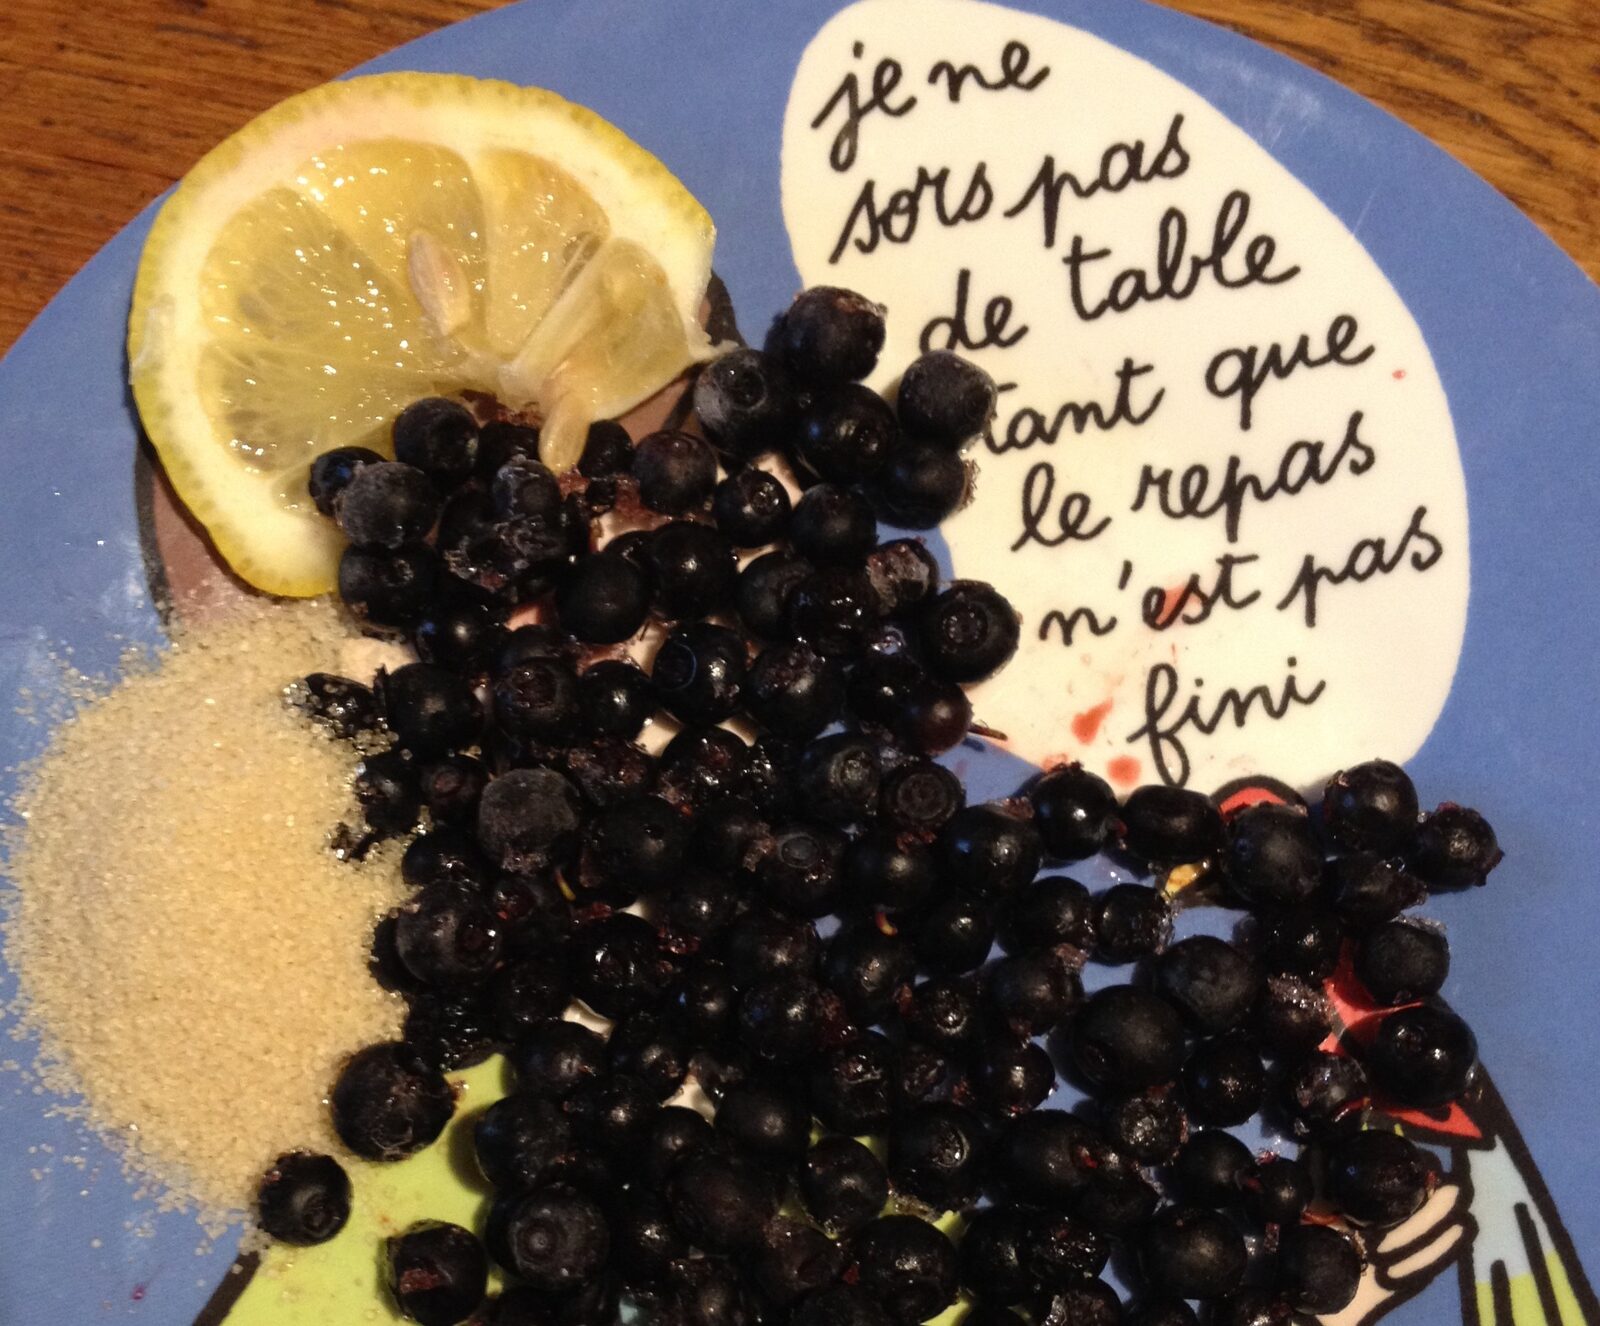 je ne
sors pas
de table
tant que
le repas
n'est pas
fini